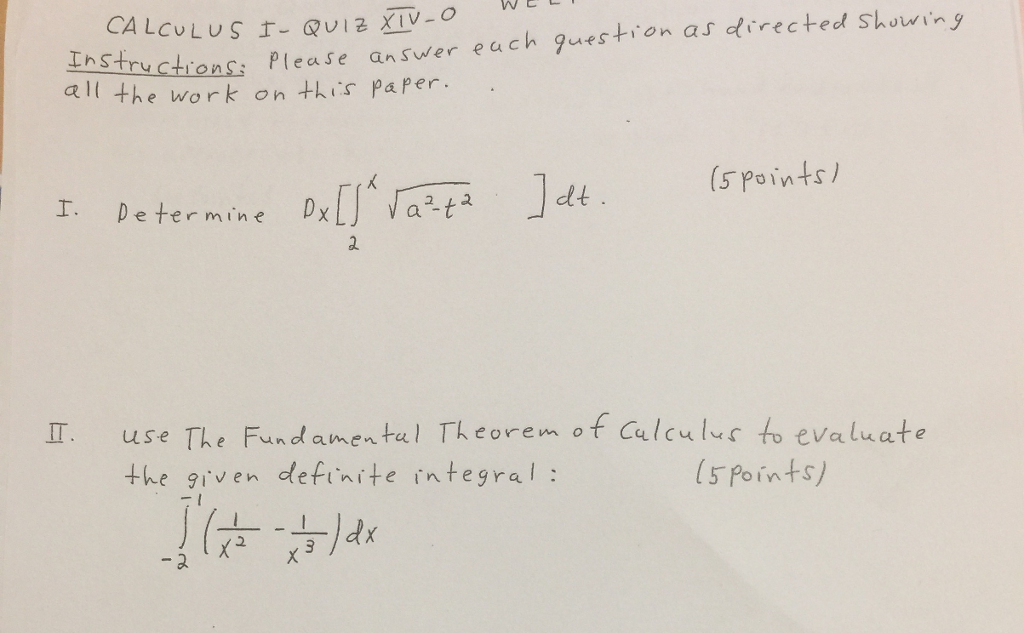 CALCULUS I - QUIZ XIV-O
Instructions: Please answer each question as directed showing
all the work on this paper.
I. Determine Dx[∫₂ˣ √(a²-t²) ]dt. (5 points)
II. use The Fundamental Theorem of Calculus to evaluate
the given definite integral: (5 points)
∫₋₂⁻¹ (1/x² - 1/x³) dx